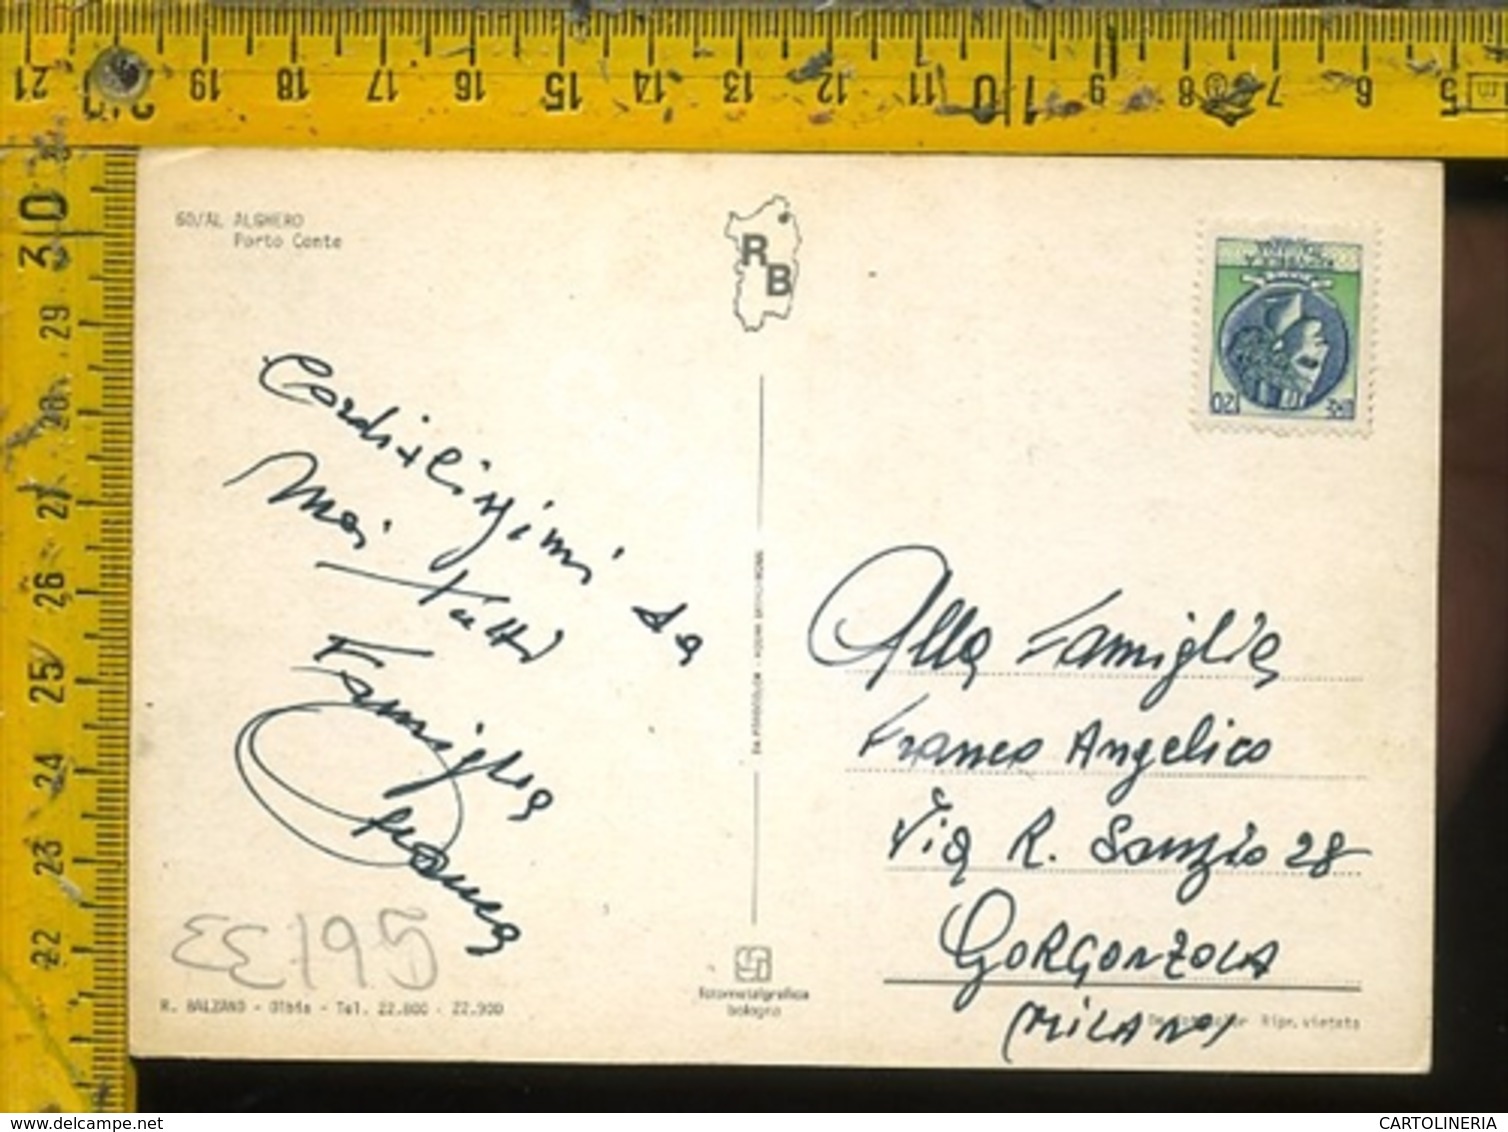 60/AL ALGHERO
Porto Conte
R
B
Cordialissimi da
noi tutti
Famiglia
Alla Famiglia
Franco Angelico
Via R. Sanzio 28
GORGONZOLA
(MILANO)
EE195
R. BALZANO - Olbia - Tel. 22.800 - 22.900
fotometalgrafica
bologna
Ripr. vietata
21 20 19 18 17 16 15 14 13 12 11 10 9 8 7 6 5
30
29
28
27
26
25
24
23
22
CARTOLINERIA